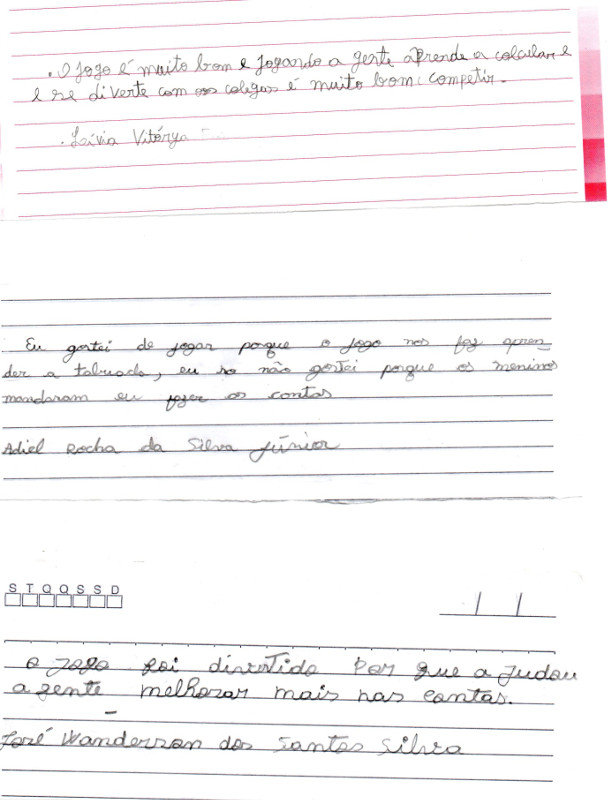 . O Jogo é muito bom e Jogando a gente aprende a calcular e
e se diverte com os colegas é muito bom competir.
. Laívia Vitórya
Eu gostei de jogar porque o jogo nos fez apren-
der a tabuada, eu so não gostei porque os meninos
mandaram eu fazer as contas
Adiel Rocha da Silva Júnior
S T Q Q S S D
/ /
O Jogo foi divertido Por que a Judou
a gente melhorar mais nas contas.
José Wanderson dos Santos Silva